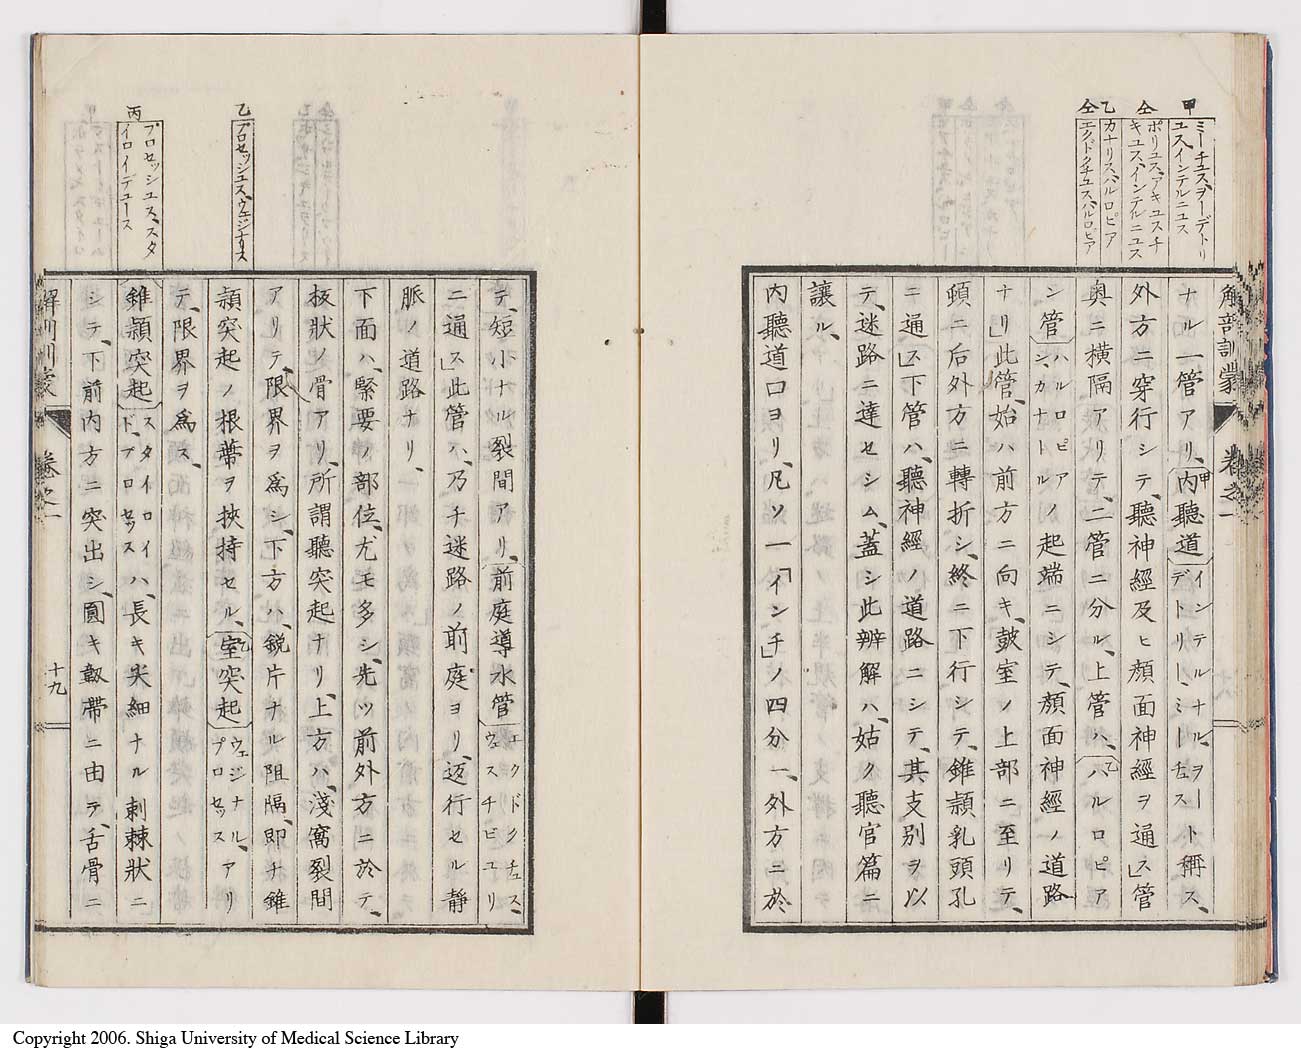 甲
ミーチュス、ヲーデトリ
ユス、インテルニユス
仝
ポリユス、アキユスチ
キユス、インテルニユス
乙
カナリス、ハルロピア
仝
エクドクチユス、ハルロピア
解剖訓蒙 卷之一
ナル一管アリ、内聽道
甲
インテルナル、ヲー
デトリー、ミーチュス
ト稱ス、
外方ニ穿行シテ、聽神經及ヒ顔面神經ヲ通ス」管
奥ニ橫隔アリテ、二管ニ分ル、上管ハ、ハルロピア
乙
ン管
ハルロピア
ン、カナル
トノ起端ニシテ、顔面神經ノ道路
ナリ」此管、始ハ前方ニ向キ、鼓室ノ上部ニ至リテ、
頓ニ后外方ニ轉折シ、終ニ下行シテ、錐顙乳頭孔
ニ通ス」下管ハ、聽神經ノ道路ニシテ、其支別ヲ以
テ、迷路ニ達セシム、蓋シ此辨解ハ、姑ク聽官篇ニ
讓ル、
内聽道口ヨリ、凡ソ一「インチ」ノ四分一、外方ニ於
乙
プロセッシユス、ウェジナリス
丙
プロセッシユス、スタ
イロイデュース
テ、短小ナル裂間アリ、前庭導水管
エクドクチュス、
ウェスチビユリ
ニ通ス」此管ハ、乃チ迷路ノ前庭ヨリ、迈行セル靜
脈ノ道路ナリ、
下面ハ、緊要ノ部位、尤モ多シ、先ツ前外方ニ於テ、
板狀ノ骨アリ、所謂聽突起ナリ、上方ハ、淺窩裂間
アリテ、限界ヲ爲シ、下方ハ、銳片ナル阻隔、即チ錐
顙突起ノ根蔕ヲ挾持セル、室突起
乙
ウェジナル、
プロセッス
アリ
テ、限界ヲ爲ス、
錐顙突起
スタイロイ
ド、プロセッス
ハ、長キ尖細ナル刺棘狀ニ
シテ、下前内方ニ突出シ、圓キ韌帶ニ由テ、舌骨ニ
解剖訓蒙 卷之一 十九
Copyright 2006. Shiga University of Medical Science Library